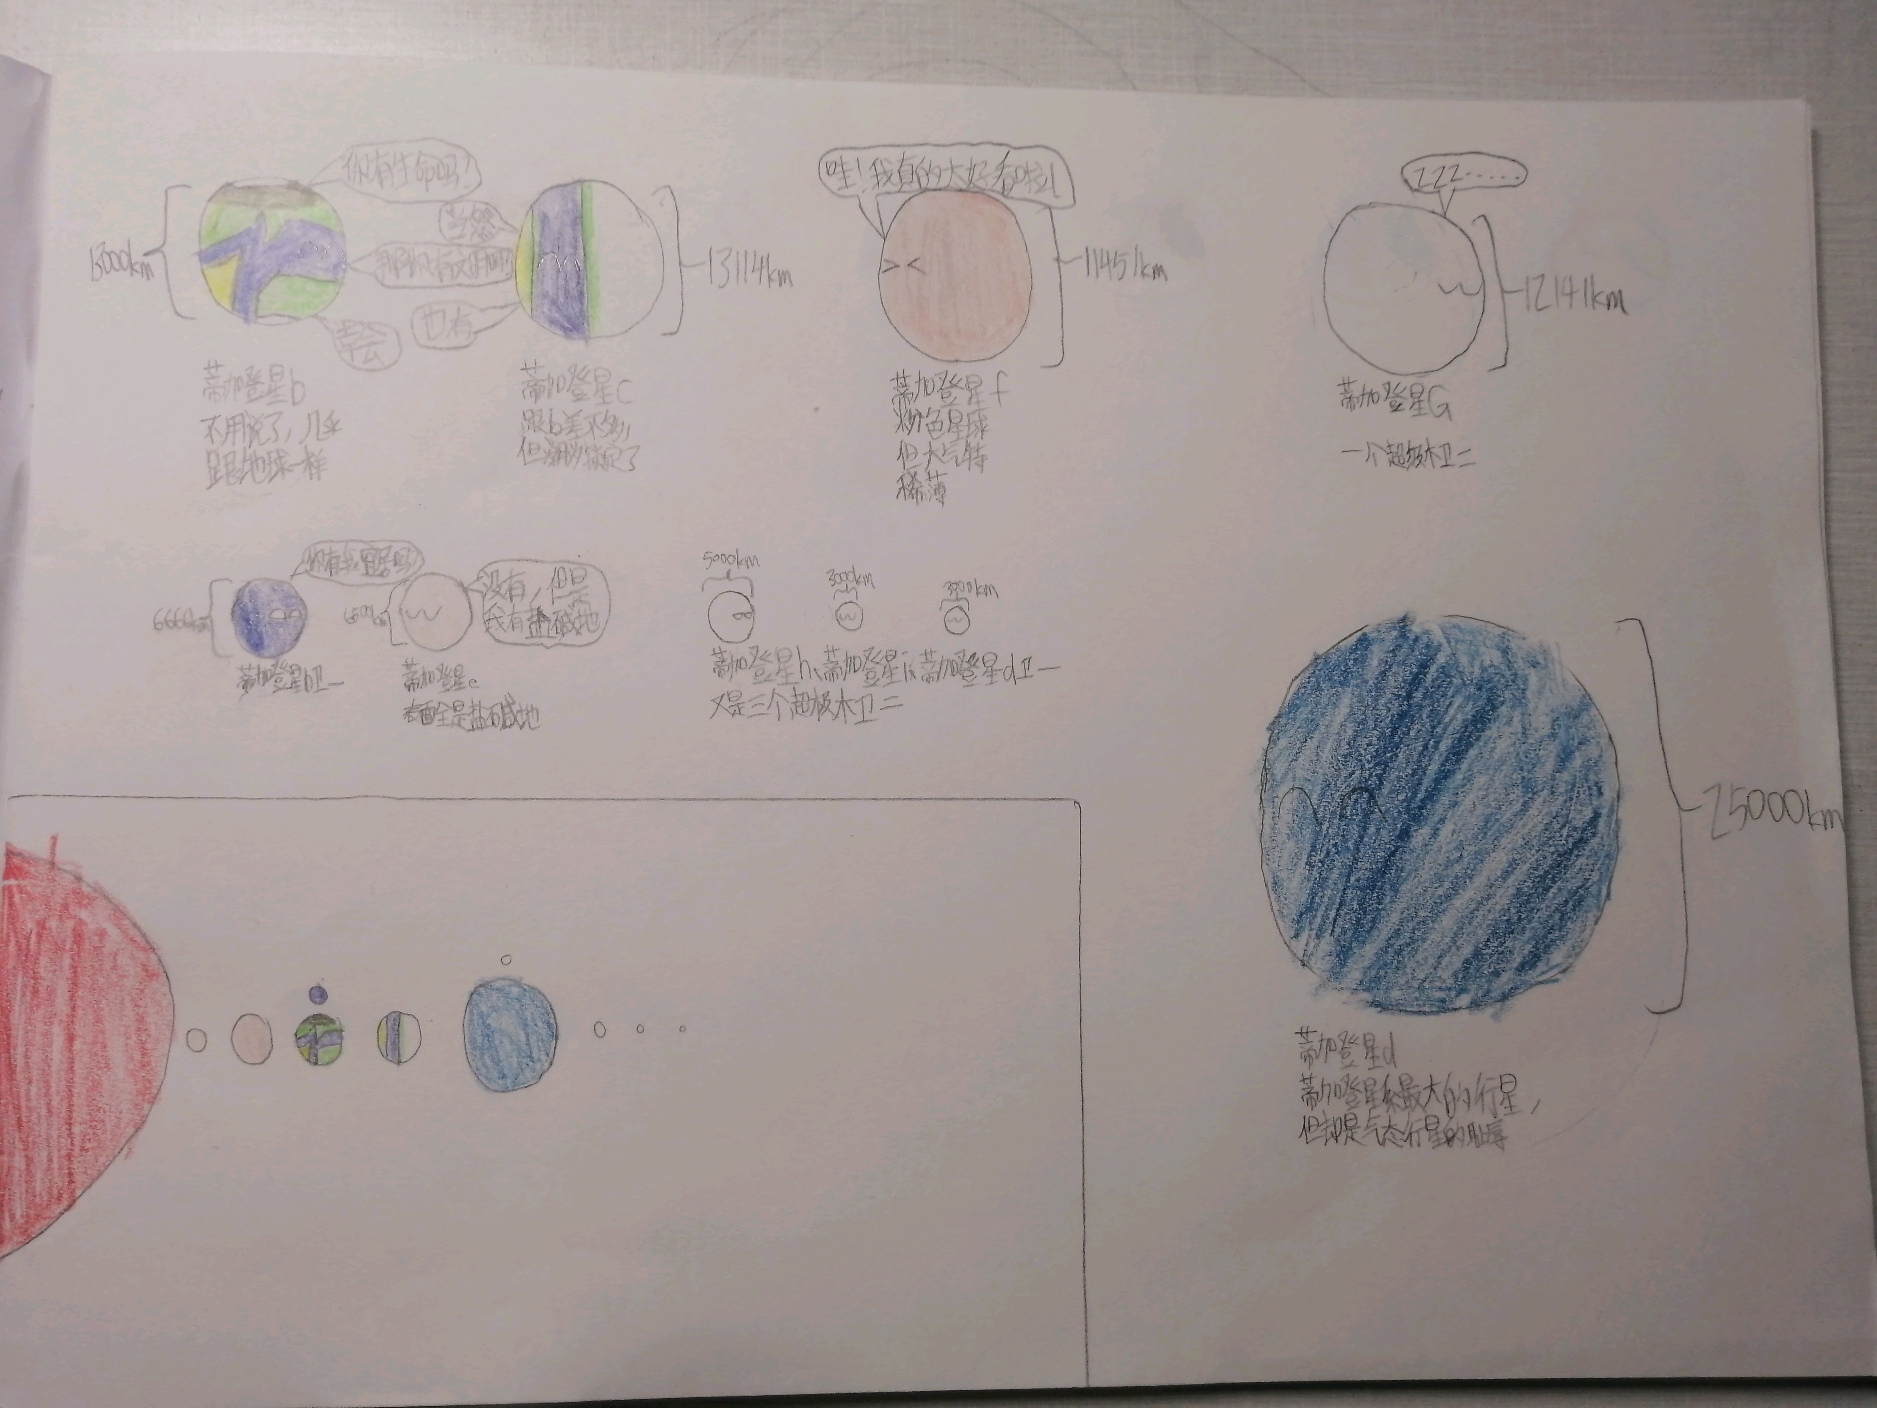 你有生命吗?
当然
那你有文明吗?
也有
幸会
13000km
13114km
蒂加登星b
不用说了，几乎
是跟地球一样
蒂加登星c
跟b差不多，
但潮汐锁定了
哇!我真的太好看啦!
11451km
蒂加登星f
粉色星球
但大气特
稀薄
ZZZ......
12141km
蒂加登星G
一个超级木卫二
6666km
蒂加登星b卫一
没有，但是
我有盐碱地
蒂加登星e
表面全是盐碱地
5000km
3000km
蒂加登星h、蒂加登星i、蒂加登星d卫一
又是三个超极木卫二
25000km
蒂加登星d
蒂加登星系最大的行星，
但却是气态行星的耻辱